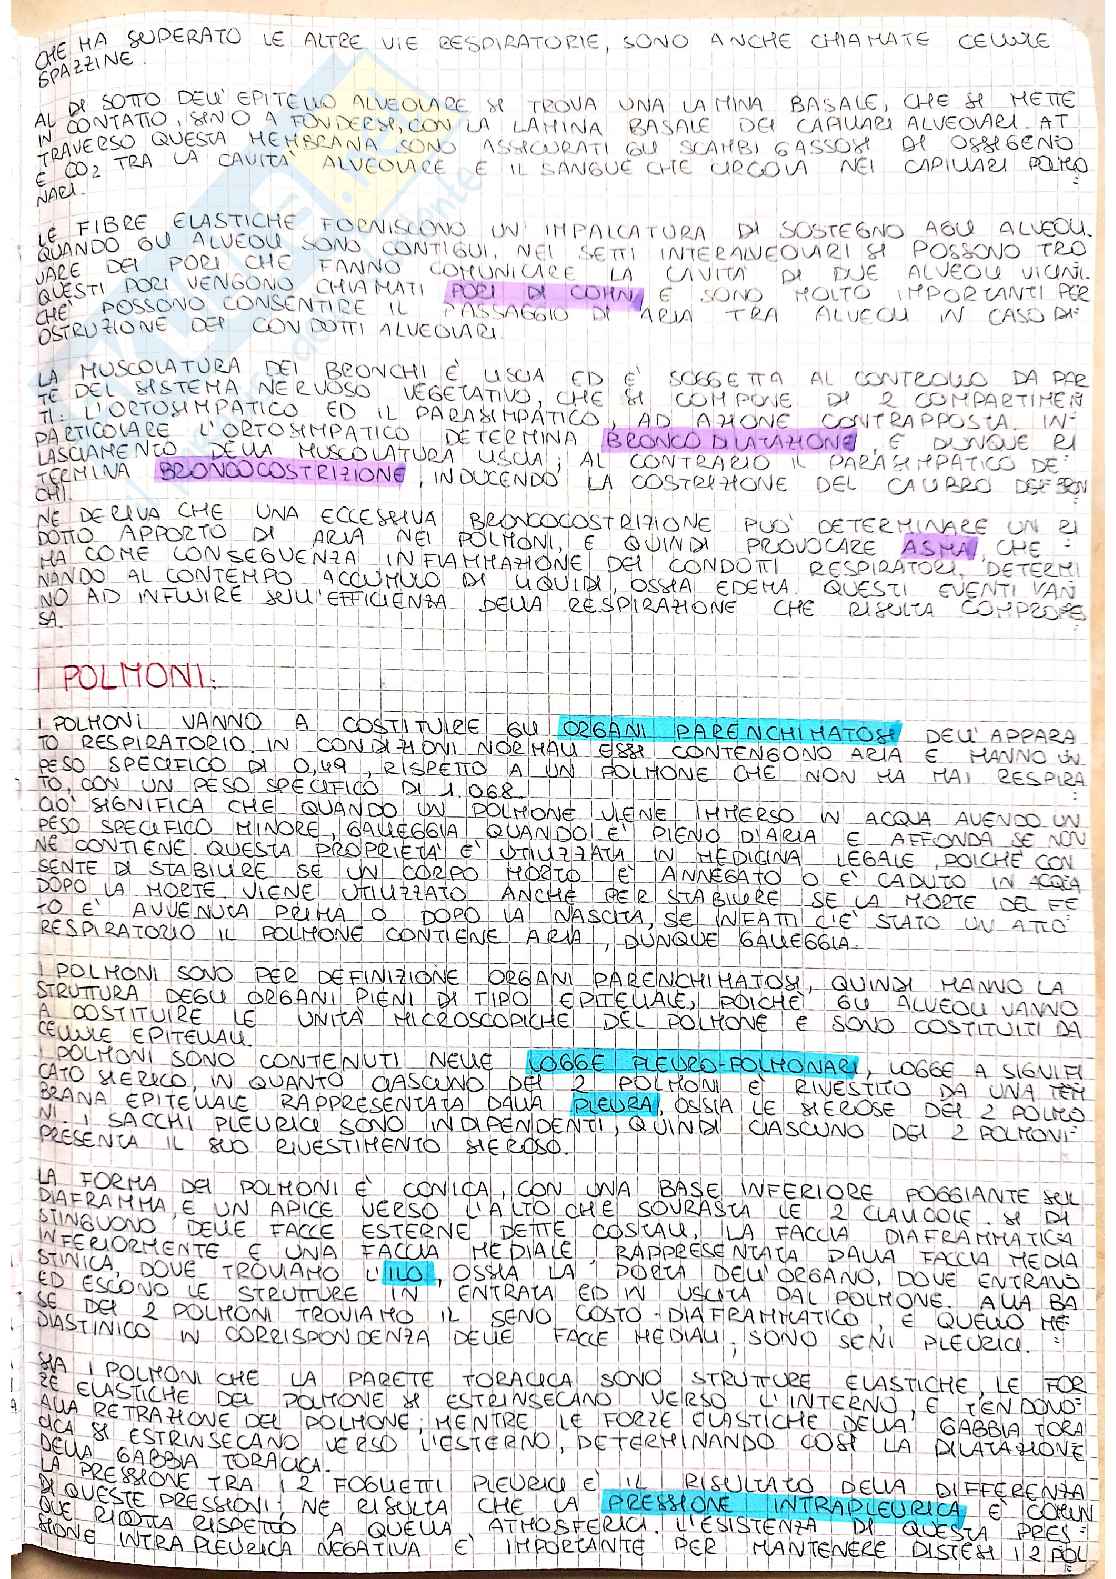 CHE HA SUPERATO LE ALTRE VIE RESPIRATORIE, SONO ANCHE CHIAMATE CELLULE
SPAZZINE.
AL DI SOTTO DELL'EPITELIO ALVEOLARE SI TROVA UNA LAMINA BASALE, CHE SI METTE
IN CONTATTO, SINO A FONDERSI, CON LA LAMINA BASALE DEI CAPILLARI ALVEOLARI. AT
TRAVERSO QUESTA MEMBRANA SONO ASSICURATI GLI SCAMBI GASSOSI DI OSSIGENO
E CO2 TRA LA CAVITA' ALVEOLARE E IL SANGUE CHE CIRCOLA NEI CAPILLARI POLMO
NARI.
LE FIBRE ELASTICHE FORNISCONO UN' IMPALCATURA DI SOSTEGNO AGLI ALVEOLI.
QUANDO GLI ALVEOLI SONO CONTIGUI, NEI SETTI INTERALVEOLARI SI POSSONO TRO
VARE DEI PORI CHE FANNO COMUNICARE LA CAVITA' DI DUE ALVEOLI VICINI.
QUESTI PORI VENGONO CHIAMATI PORI DI COHN, E SONO MOLTO IMPORTANTI PER
CHE' POSSONO CONSENTIRE IL PASSAGGIO DI ARIA TRA ALVEOLI IN CASO DI
OSTRUZIONE DEI CONDOTTI ALVEOLARI.
LA MUSCOLATURA DEI BRONCHI E' LISCIA ED E' SOGGETTA AL CONTROLLO DA PAR
TE DEL SISTEMA NERVOSO VEGETATIVO, CHE SI COMPONE DI 2 COMPARTIMEN
TI: L'ORTOSIMPATICO ED IL PARASIMPATICO, AD AZIONE CONTRAPPOSTA. IN
PARTICOLARE L'ORTOSIMPATICO DETERMINA BRONCODILATAZIONE, E DUNQUE RI
LASCIAMENTO DELLA MUSCOLATURA LISCIA; AL CONTRARIO IL PARASIMPATICO DE
TERMINA BRONCOCOSTRIZIONE, INDUCENDO LA COSTRIZIONE DEL CALIBRO DEI BRON
CHI.
NE DERIVA CHE UNA ECCESSIVA BRONCOCOSTRIZIONE PUO' DETERMINARE UN RI
DOTTO APPORTO DI ARIA NEI POLMONI, E QUINDI PROVOCARE ASMA, CHE
HA COME CONSEGUENZA INFIAMMAZIONE DEI CONDOTTI RESPIRATORI, DETERMI
NANDO AL CONTEMPO ACCUMULO DI LIQUIDI, OSSIA EDEMA. QUESTI EVENTI VAN
NO AD INFLUIRE SULL'EFFICIENZA DELLA RESPIRAZIONE CHE RISULTA COMPROMES
SA.
I POLMONI:
I POLMONI VANNO A COSTITUIRE GLI ORGANI PARENCHIMATOSI DELL'APPARA
TO RESPIRATORIO. IN CONDIZIONI NORMALI ESSI CONTENGONO ARIA E HANNO UN
PESO SPECIFICO DI 0,49, RISPETTO A UN POLMONE CHE NON HA MAI RESPIRA
TO, CON UN PESO SPECIFICO DI 1.068.
CIO' SIGNIFICA CHE QUANDO UN POLMONE VIENE IMMERSO IN ACQUA AVENDO UN
PESO SPECIFICO MINORE, GALLEGGIA QUANDO E' PIENO D'ARIA E AFFONDA SE NON
NE CONTIENE. QUESTA PROPRIETA' E' UTILIZZATA IN MEDICINA LEGALE, POICHE' CON
SENTE DI STABILIRE SE UN CORPO MORTO E' ANNEGATO O E' CADUTO IN ACQUA
DOPO LA MORTE. VIENE UTILIZZATO ANCHE PER STABILIRE SE LA MORTE DEL FE
TO E' AVVENUTA PRIMA O DOPO LA NASCITA, SE INFATTI C'E' STATO UN ATTO
RESPIRATORIO IL POLMONE CONTIENE ARIA, DUNQUE GALLEGGIA.
I POLMONI SONO PER DEFINIZIONE ORGANI PARENCHIMATOSI, QUINDI HANNO LA
STRUTTURA DEGLI ORGANI PIENI DI TIPO EPITELIALE, POICHE' GLI ALVEOLI VANNO
A COSTITUIRE LE UNITA' MICROSCOPICHE DEL POLMONE E SONO COSTITUITI DA
CELLULE EPITELIALI.
I POLMONI SONO CONTENUTI NELLE LOGGE PLEURO-POLMONARI, LOGGE A SIGNIFI
CATO SIERICO, IN QUANTO CIASCUNO DEI 2 POLMONI E' RIVESTITO DA UNA MEM
BRANA EPITELIALE RAPPRESENTATA DALLA PLEURA, OSSIA LE SIEROSE DEI 2 POLMO
NI. I SACCHI PLEURICI SONO INDIPENDENTI, QUINDI CIASCUNO DEI 2 POLMONI
PRESENTA IL SUO RIVESTIMENTO SIEROSO.
LA FORMA DEI POLMONI E' CONICA, CON UNA BASE INFERIORE POGGIANTE SUL
DIAFRAMMA, E UN APICE VERSO L'ALTO CHE SOVRASTA LE 2 CLAVICOLE. SI DI
STINGUONO DELLE FACCE ESTERNE DETTE COSTALI, LA FACCIA DIAFRAMMATICA
INFERIORMENTE E UNA FACCIA MEDIALE, RAPPRESENTATA DALLA FACCIA MEDIA
STINICA, DOVE TROVIAMO L'ILO, OSSIA LA PORTA DELL'ORGANO, DOVE ENTRANO
ED ESCONO LE STRUTTURE IN ENTRATA ED IN USCITA DAL POLMONE. ALLA BA
SE DEI 2 POLMONI TROVIAMO IL SENO COSTO-DIAFRAMMATICO, E QUELLO ME
DIASTINICO IN CORRISPONDENZA DELLE FACCE MEDIALI, SONO SENI PLEURICI.
SIA I POLMONI CHE LA PARETE TORACICA SONO STRUTTURE ELASTICHE, LE FOR
ZE ELASTICHE DEL POLMONE SI ESTRINSECANO VERSO L'INTERNO, E TENDONO
ALLA RETRAZIONE DEL POLMONE; MENTRE LE FORZE ELASTICHE DELLA GABBIA TORA
CICA SI ESTRINSECANO VERSO L'ESTERNO, DETERMINANDO COSI' LA DILATAZIONE
DELLA GABBIA TORACICA.
LA PRESSIONE TRA I 2 FOGLIETTI PLEURICI E' IL RISULTATO DELLA DIFFERENZA
DI QUESTE PRESSIONI; NE RISULTA CHE LA PRESSIONE INTRAPLEURICA E' COMUN
QUE RIDOTTA RISPETTO A QUELLA ATMOSFERICA. L'ESISTENZA DI QUESTA PRES
SIONE INTRAPLEURICA NEGATIVA E' IMPORTANTE PER MANTENERE DISTESI I 2 POL